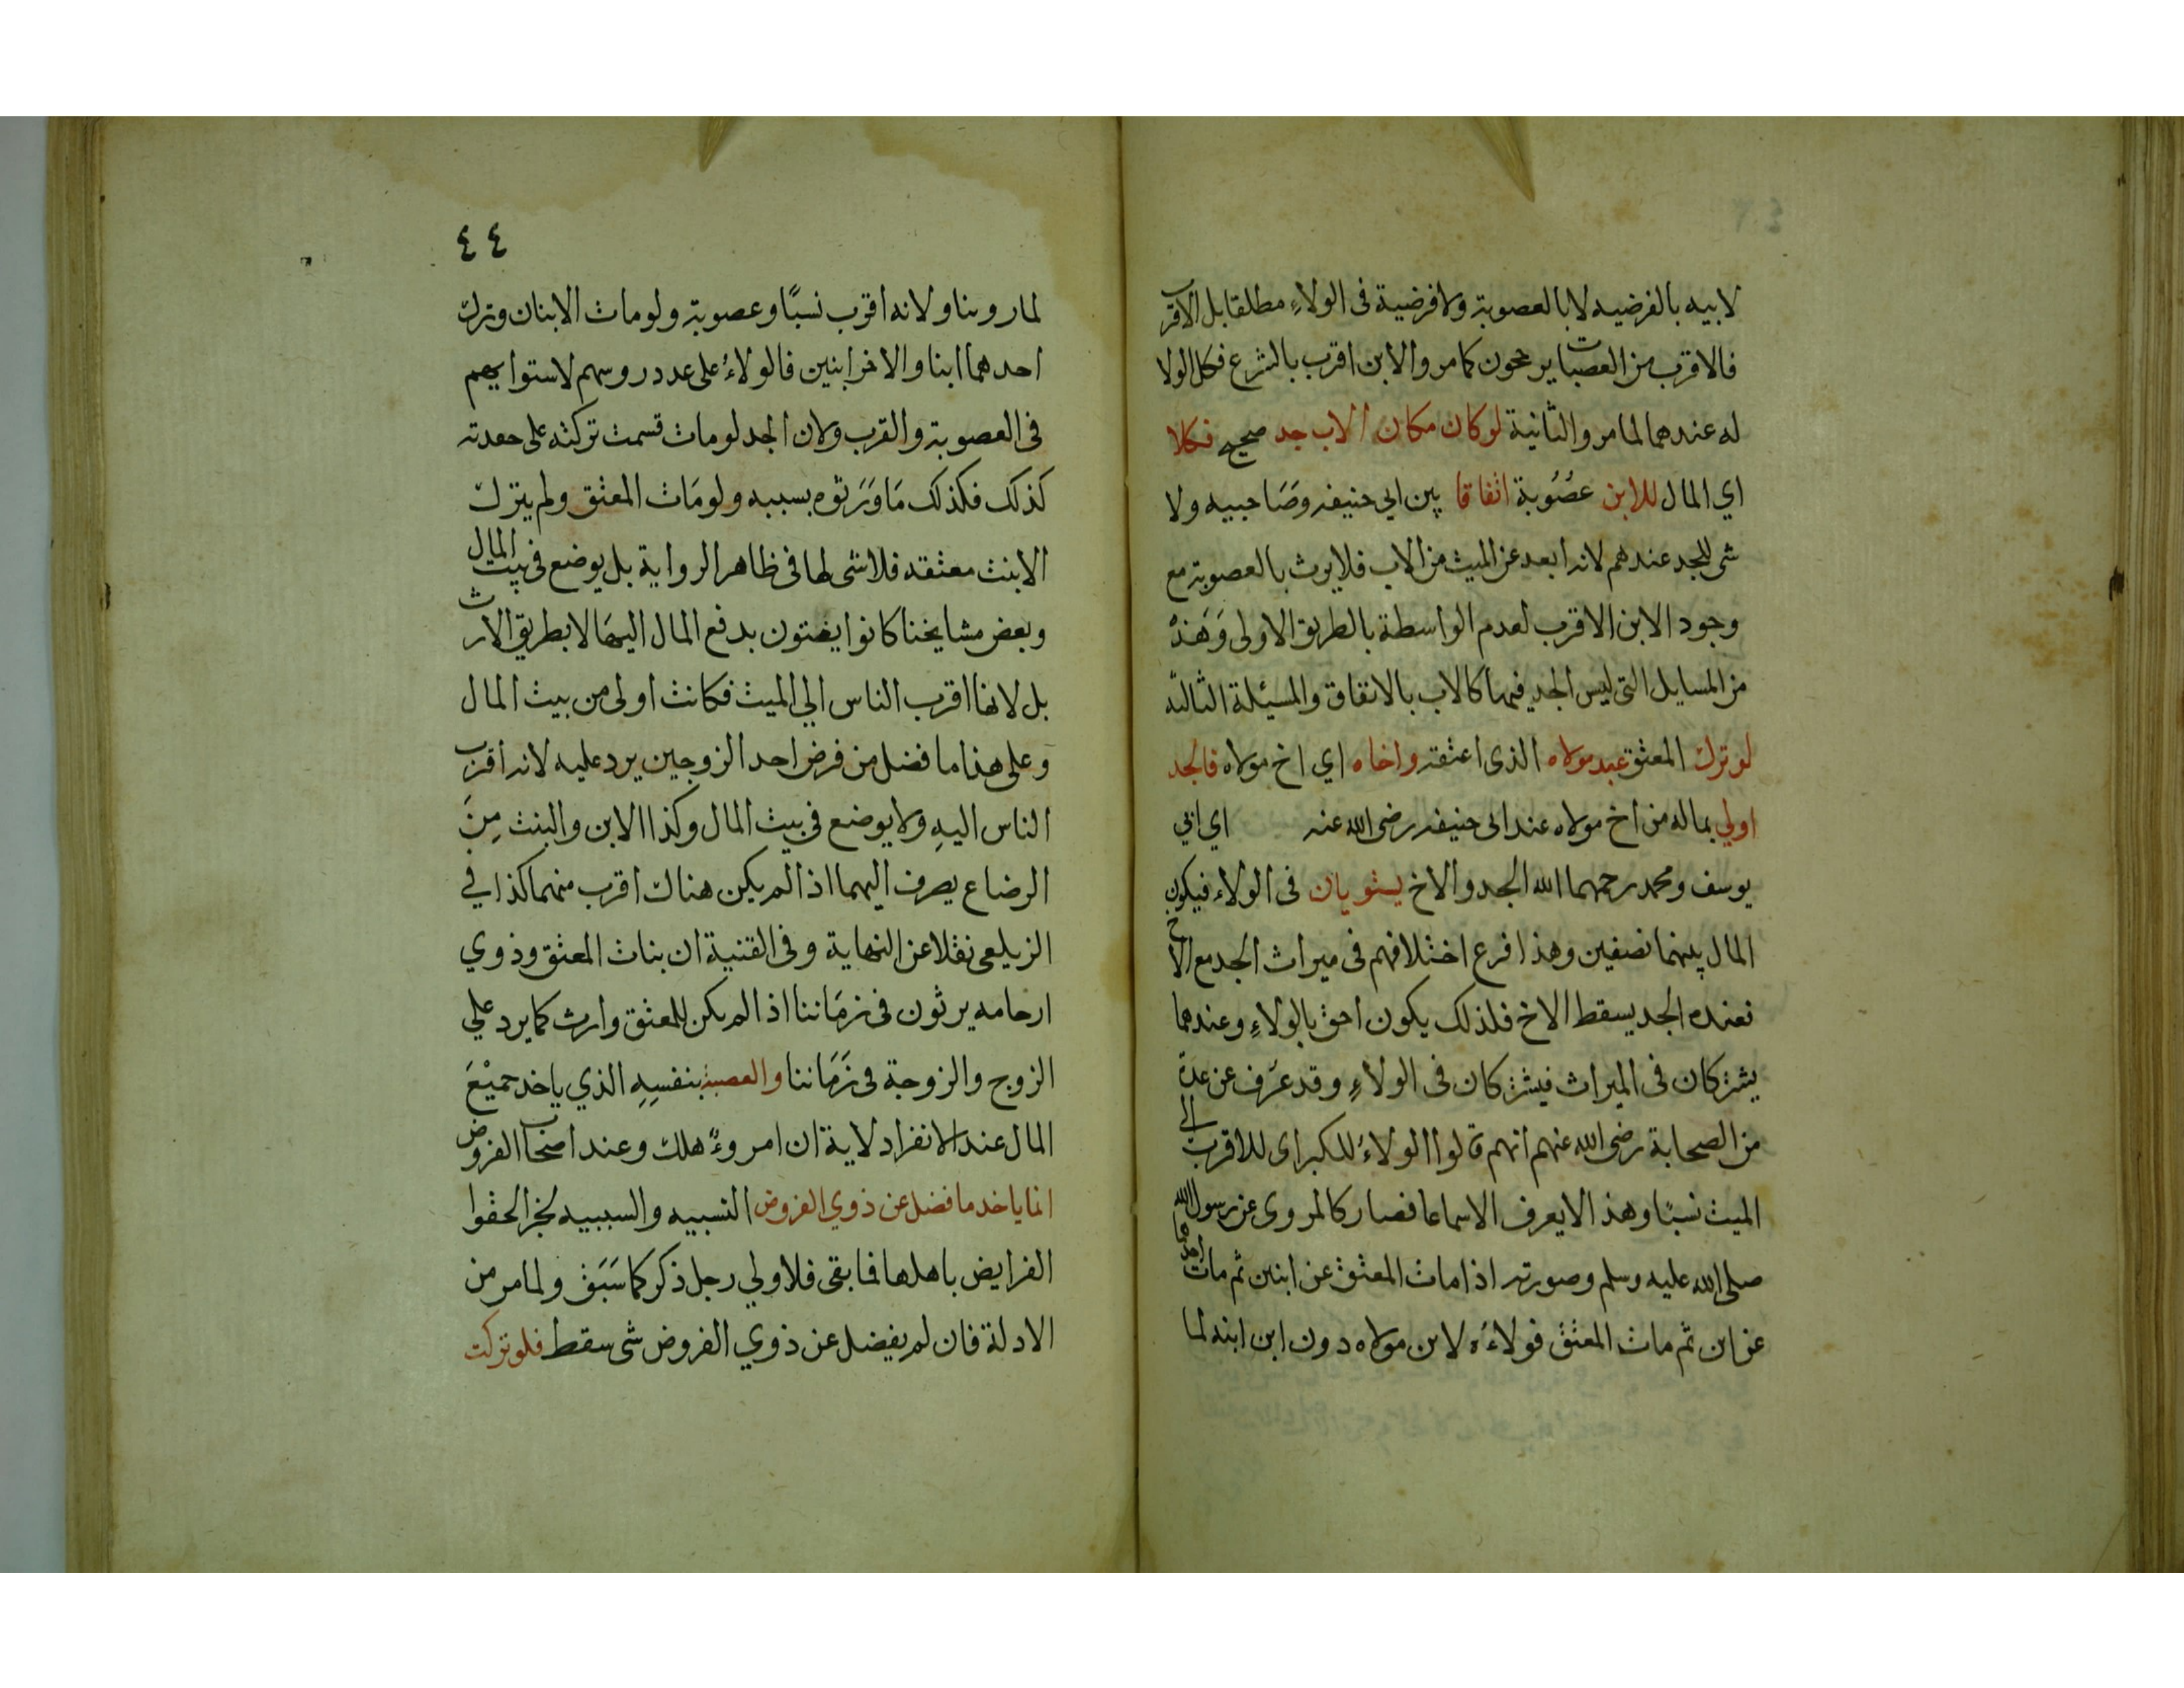 لابيه بالفرضيه لا بالعصوبة ولا فرضية فى الولاءِ مطلقا بل الاقرب
فالاقرب من العصبات يرجحون كما مر والابن اقرب بالشرع فكل الولا
له عندهما لما مر والثانية لو كان مكان الاب جد صحيح فكلا
اي المال للابن عصُوبة اتفاقا بين ابي حنيفه وصَاحبيه ولا
شى للجد عندهم لانه ابعد عن الميت من الاب فلا يرث بالعصوبة مع
وجود الابن الاقرب لعدم الواسطة بالطريق الاولى وَهَذه
من المسايل التى ليس الجد فيها كالاب بالاتفاق والمسيئلة الثالثه
لو ترك المعتق عبد مولاه الذى اعتقه واخاه اي اخ مولاه فالجد
اولي بماله من اخ مولاه عند ابى حنيفه رضى الله عنه اي ابي
يوسف ومحمد رحمهما الله الجد والاخ يستويان فى الولاء فيكون
المال بينهما نصفين وهذا فرع اختلافهم فى ميراث الجد مع الاخ
فعنده الجد يسقط الاخ فلذلك يكون احق بالولاءِ وعندهما
يشتركان فى الميراث فيشتركان فى الولاءِ وقد عرَف عن عدة
من الصحابة رضى الله عنهم انهم قالوا الولاءُ للكبر اى للاقرب الى
الميت نسبًا وهذا لا يعرف الا سماعا فصار كالمروى عن رسول الله
صلى الله عليه وسلم وصورته اذا مات المعتق عن ابنين ثم مات احدهما
عن ابن ثم مات المعتق فولاءُه لابن مولاه دون ابن ابنه لما
٤٤
لما روينا ولانه اقرب نسبًا وعصوبة ولو مات الابنان وترك
احدهما ابنا والاخر ابنين فالولاءُ على عدد روسهم لاستوايهم
فى العصوبة والقرب ولان الجد لو مات قسمت تركته على حفدته
كذلك فكذلك مَا وَرَثوه بسببه ولو مَات المعتق ولم يترك
الا بنت معتقه فلا شى لها فى ظاهر الرواية بل يوضع فى بيت المال
وبعض مشايخنا كانوا يفتون بدفع المال اليهَا لا بطريق الارث
بل لانها اقرب الناس الي الميت فكانت اولى من بيت المال
وعلى هذا ما فضل من فرض احد الزوجين يرد عليه لانه اقرب
الناس اليهِ ولا يوضع فى بيت المال وكذا الابن والبنت مِنَ
الرضاع يصرف اليهما اذا لم يكن هناك اقرب منهما كذا في
الزيلعى نقلا عن النهاية وفى القنية ان بنات المعتق وذوي
ارحامه يرثون فى زمَاننا اذا لم يكن للمعتق وارث كما يرد علي
الزوج والزوجة فى زَمَاننا والعصبة بنفسِهِ الذي ياخد جميْعَ
المال عند الانفراد لاية ان امروءٌ هلك وعند اصحاب الفروض
انما ياخد ما فضل عن ذوي الفروض النسبيه والسببيه لخبر الحقوا
الفرايض باهلها فما بقى فلاولي رجل ذكر كما سَبَق ولما مر من
الادلة فان لم يفضل عن ذوي الفروض شى سقط فلو تركت